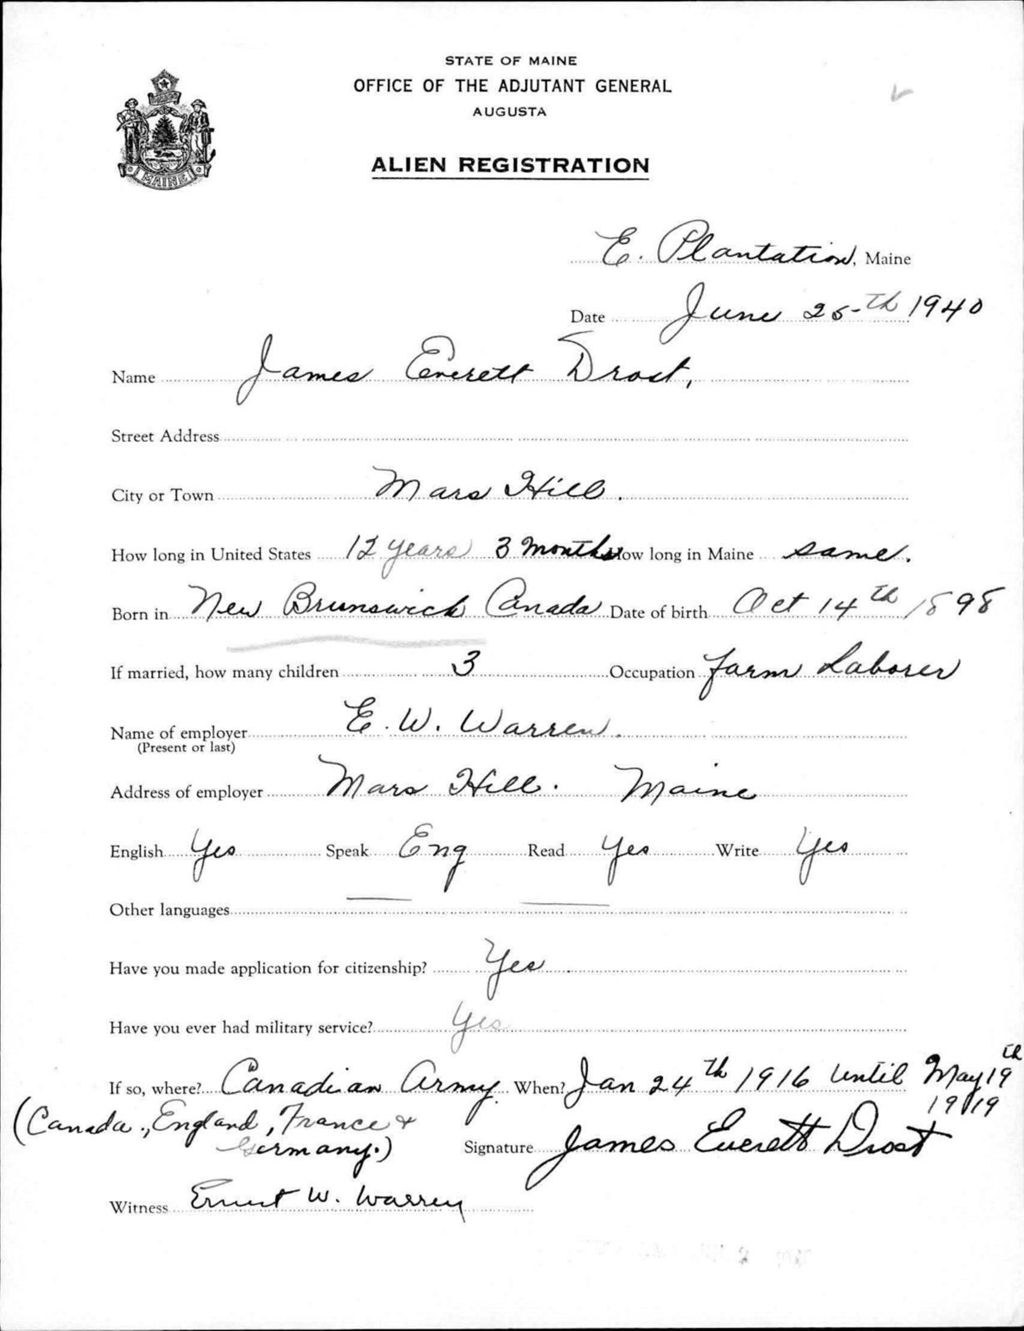 STATE OF MAINE
OFFICE OF THE ADJUTANT GENERAL
AUGUSTA
MAINE
ALIEN REGISTRATION
E. Plantation, Maine
Date June 25-th 1940
Name James Everett Drost,
Street Address
City or Town Mars Hill.
How long in United States 12 years 3 months How long in Maine same.
Born in New Brunswick Canada Date of birth Oct 14th 1898
If married, how many children 3 Occupation farm Laborer
Name of employer E. W. Warren.
(Present or last)
Address of employer Mars Hill. Maine
English Yes Speak Eng Read Yes Write Yes
Other languages
Have you made application for citizenship? Yes.
Have you ever had military service? Yes
If so, where? Canadian Army. When? Jan 24th 1916 until May 19th 1919
(Canada., England, France + Germany.)
Signature James Everett Drost
Witness Ernest W. Warren